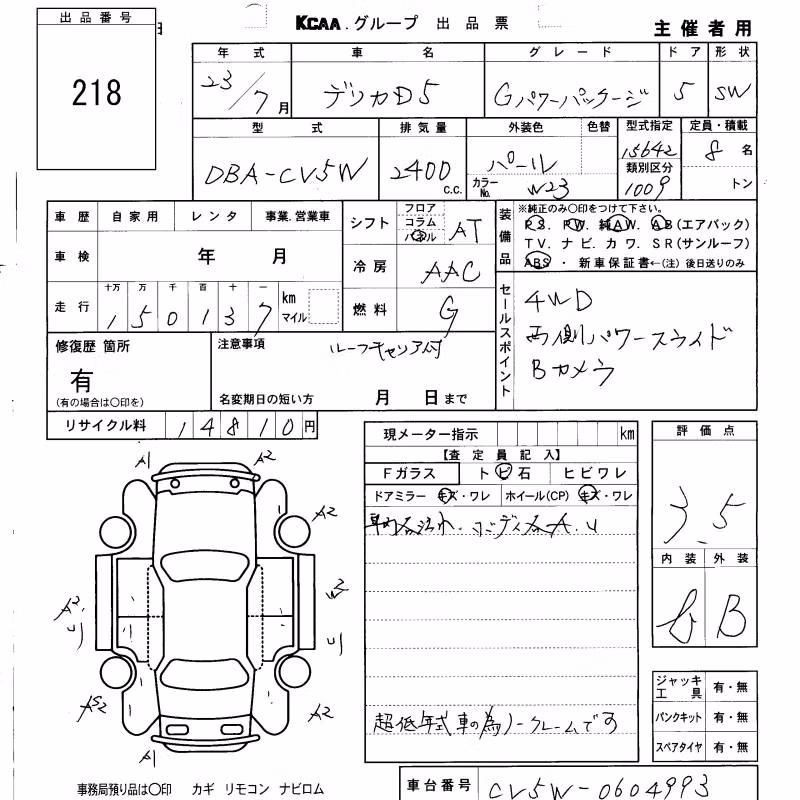 出品番号
218
KCAA.グループ 出品票
主催者用
年式 車名 グレード ドア 形状
23/7月 デリカD5 Gパワーパッケージ 5 SW
型式 排気量 外装色 色替 型式指定 定員・積載
DBA-CV5W 2400 c.c. パール 15642 8 名
カラーNo. W23 類別区分 1009 トン
車歴 自家用 レンタ 事業.営業車
車検 年 月
走行 十万 万 千 百 十 一
1 5 0 1 3 7 km マイル
シフト フロア コラム パネル AT
冷房 AAC
燃料 G
装備品
※純正のみ〇印をつけて下さい。
PS. PW. 純AW. AB(エアバック)
TV.ナビ.カワ.SR(サンルーフ)
ABS・新車保証書←(注)後日送りのみ
セールスポイント
4WD
両側パワースライド
Bカメラ
修復歴 箇所
有
(有の場合は〇印を)
注意事項
ルーフキャリア付
名変期日の短い方 月 日まで
リサイクル料 14810円
現メーター指示 km
【査定員記入】
Fガラス トビ石 ヒビワレ
ドアミラー キズ・ワレ ホイール(CP) キズ・ワレ
超低年式車の為ノークレームです
評価点
3.5
内装 外装
B
A1 A2
A2
A2
A2
A1
ジャッキ工具 有・無
パンクキット 有・無
スペアタイヤ 有・無
事務局預り品は〇印 カギ リモコン ナビロム
車台番号 CV5W-0604993